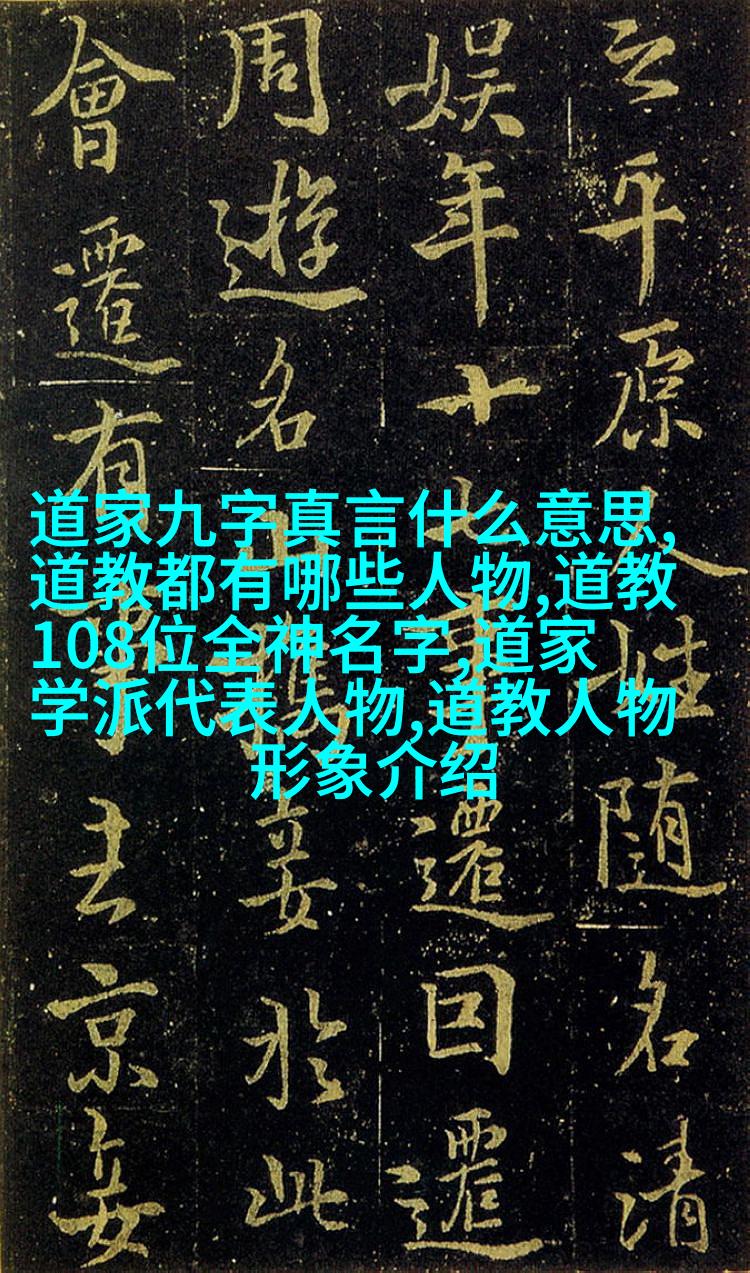 之平原人姓随名清
娱年十七事遷因遷
周遊名山携妾於此
會遷有事去京妾
道家九字真言什么意思,
道教都有哪些人物,道教
108位全神名字,道家
学派代表人物,道教人物
形象介绍